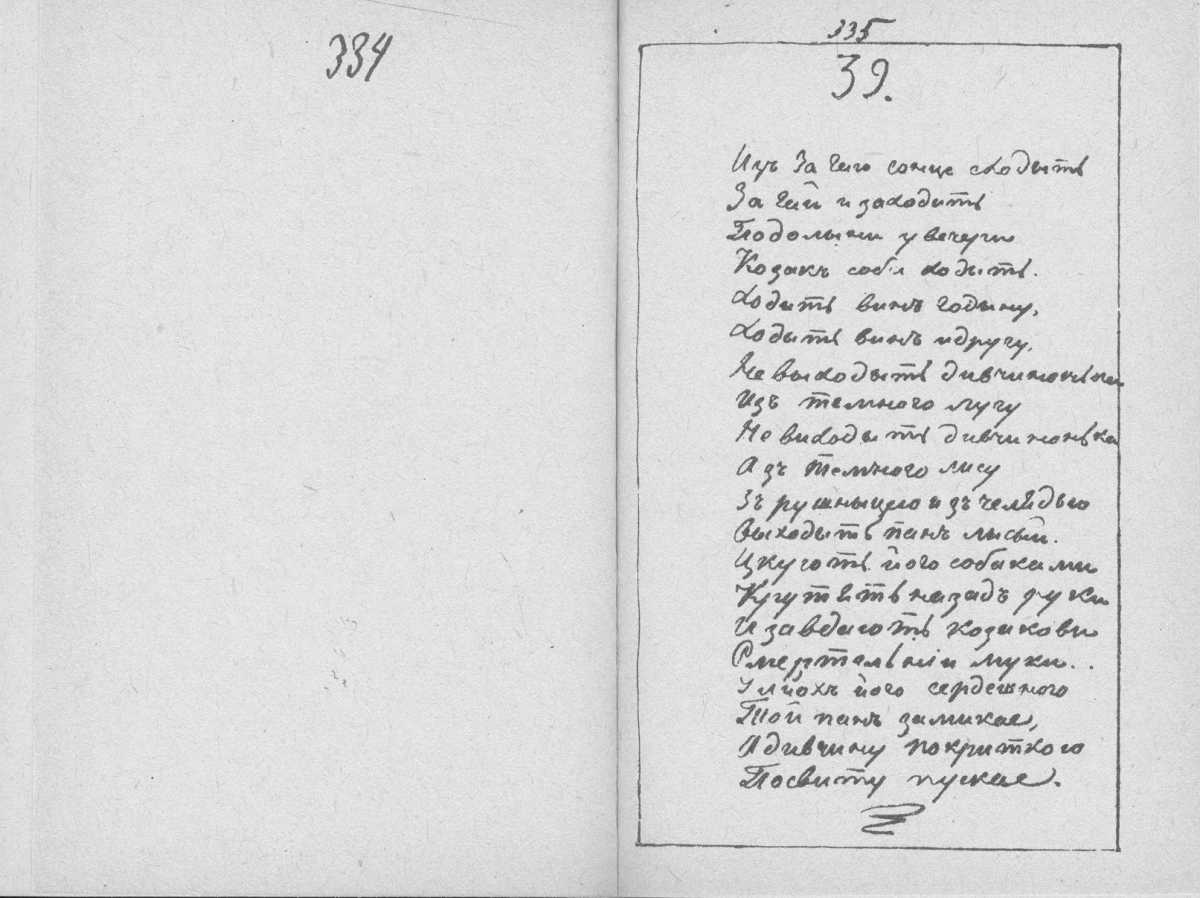 334
335
39.
Изъ За гаю сонце сходыть
За гай и заходить
Подолыни у вечери
Козакъ соби ходыть.
Ходить винъ годыну,
Ходыть винъ идругу,
Не выходыть дивчинонька
Изъ темного лугу
Не виходыть дивчинонька
А зъ темного лису
Зъ рушныцею изъ челядью
Выходыть панъ лысый.
Цкують його собаками
Крутять назадъ руки
И завдають козакови
Смертельнии муки..
У лйохъ його сердешного
Той панъ замикае,
А дивчину покриткою
Посвиту пускае.